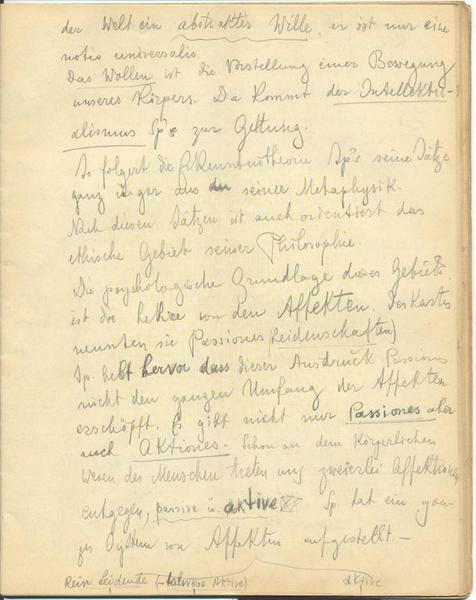 der Welt ein abstraktes Wille, er ist nur eine
notio universalis.
Das Wollen ist die Vorstellung einer Bewegung
unseres Körpers. Da kommt der Intellektu-
alismus Sp's zur Geltung.
So folgert die Erkenntnistheorie Sp's seine Sätze
ganz aus seiner Metaphysik.
Nach diesen Sätzen ist auch orientiert das
ethische Gebiet seiner Philosophie.
Die psychologische Grundlage dieses Gebiets
ist die Lehre von den Affekten. Deskartes
nennten sie Passiones Leidenschaften)
Sp. hebt hervor dass dieser Ausdruck Passiones
nicht den ganzen Umfang der Affekten
erschöpft. Es gibt nicht nur Passiones aber
auch Aktiones. Schon an dem Körperlichen
Wesen des Menschen treten uns zweierlei Affektionen
entgegen, passive u. aktive Sp hat ein gan-
zes System von Affekten aufgestellt. —
Rein Leidende ( Aktive) aktive